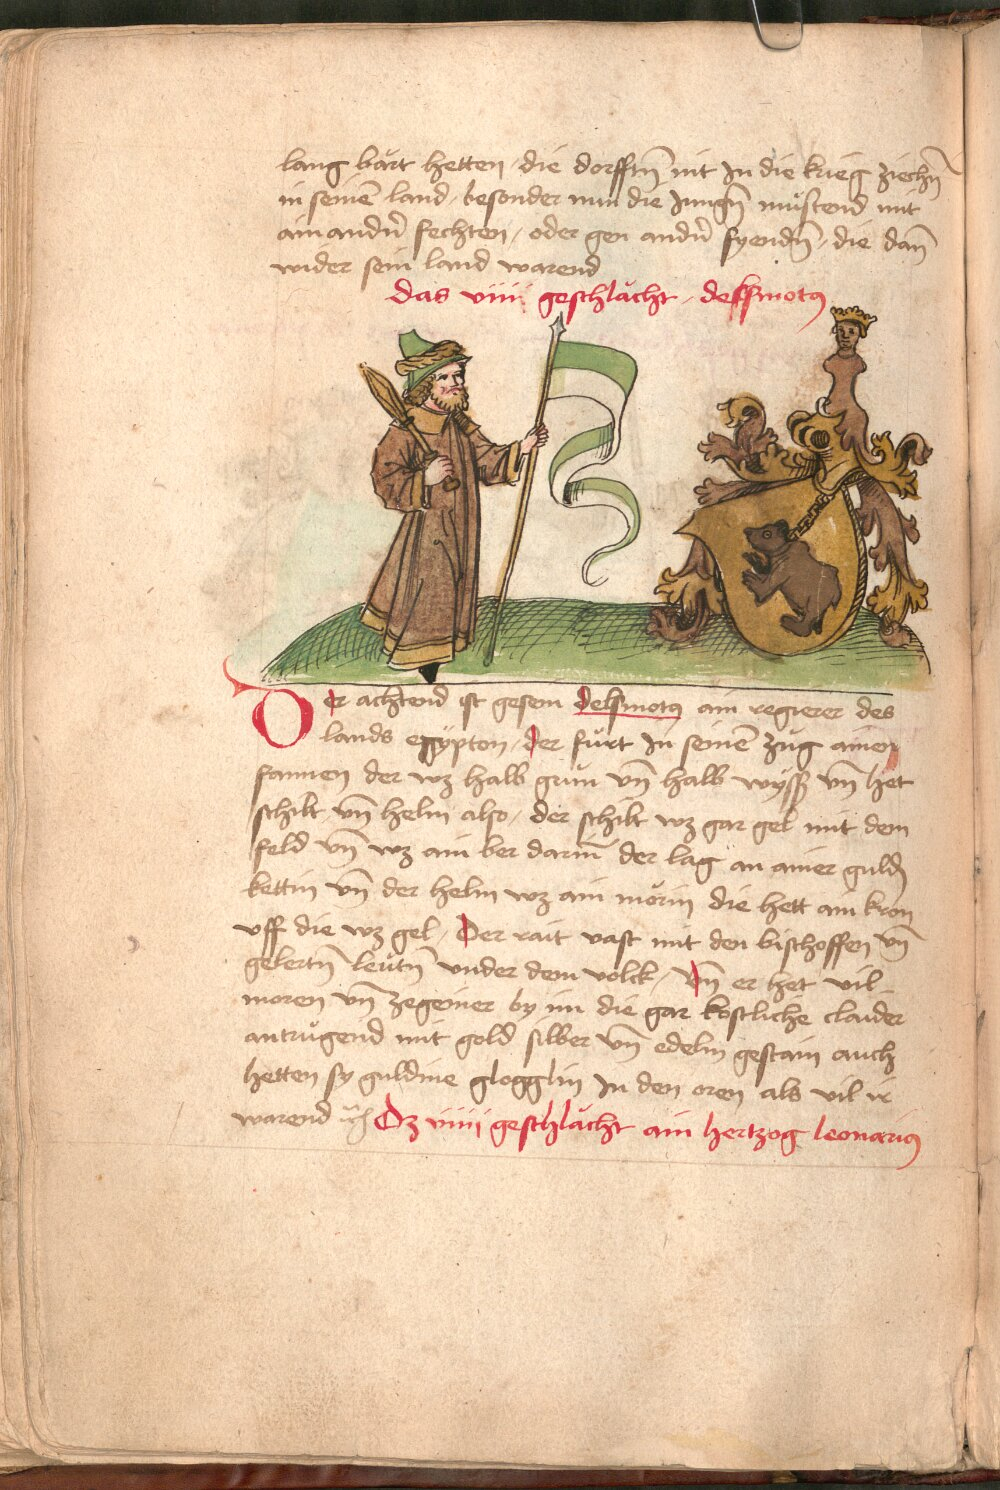 lang bärt hetten / die dorfftn̄ nit In die krieg ziechn̄
in seinē land / besonder nun die Jungn̄ mu̇stend mit
ain andr̄ fechten / oder gen andr̄ fyendn̄ / die dan̄
wider sein land warend
das viii geschlächt / delsmotꝰ
Der achtend ist gesein delsmotꝰ ain regierer des
lands egÿpten / der fu̇rt In seinē zug ainen
fannen der wz halb gru̇n vn̄ halb wÿsß vn̄ het
schilt vn̄ helm also / der schilt wz gar gel mit dem
feld vn̄ wz ain ber darin̄ der lag an ainer guldn̄
kettin vn̄ der helm wz ain mörin die hett ain kron
vff die wz gel / Der rait vast mit den bischoffen vn̄
gelertn̄ leu̇tn̄ vnder dem volck / vn̄ er het vil
moren vn̄ zegeiner by im die gar kostliche claider
antru̇gend mit gold silber vn̄ edelm gestain auch
hetten sy guldine glögglin In den oren als vil ir
warend Dz viiii geschlächt ain hertzog leonariꝰ